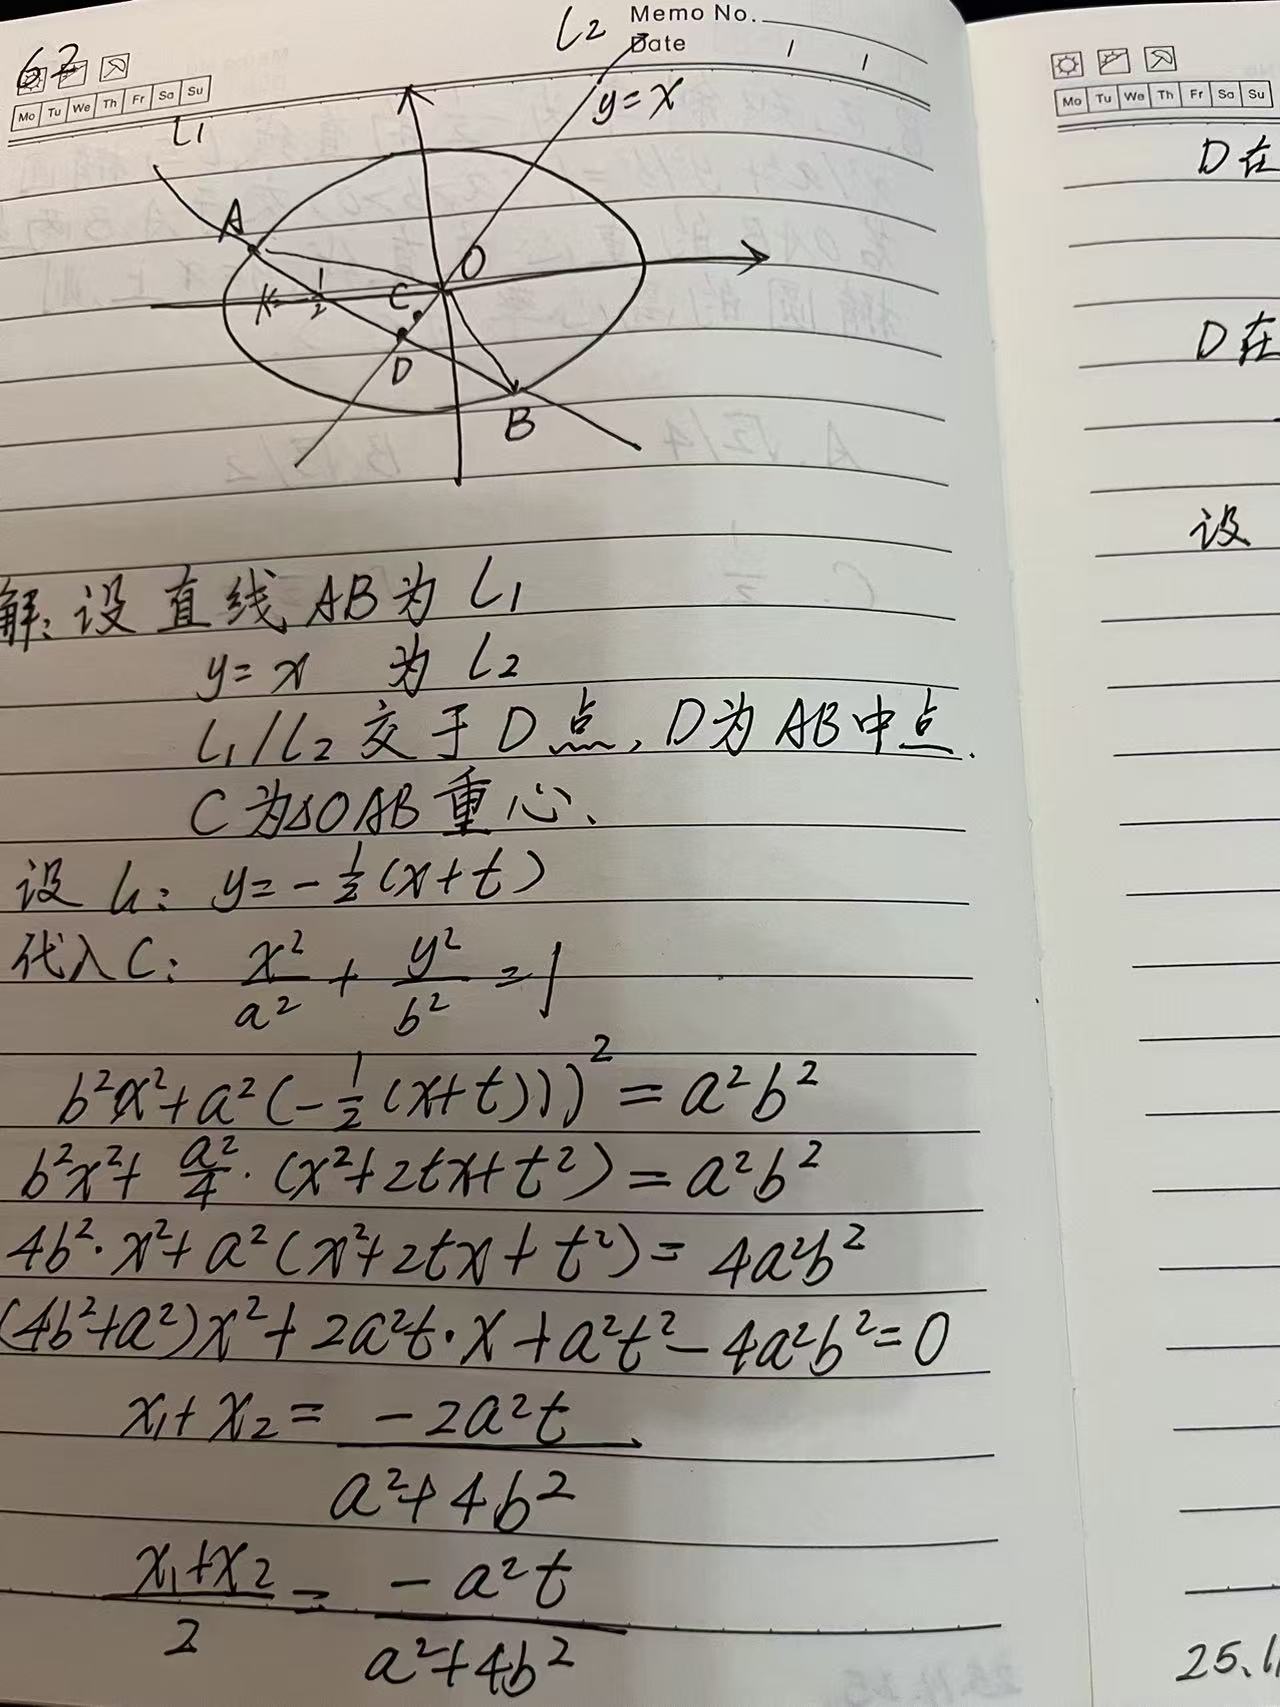 62
Mo Tu We Th Fr Sa Su
Memo No.
Date / /
L2
y=x
L1
A
K=-1/2
C
O
D
B
解:设直线AB为L1
y=x 为L2
L1/L2交于D点,D为AB中点.
C为△OAB重心、
设L1: y=-1/2(x+t)
代入C: x²/a² + y²/b² = 1
b²x²+a²(-1/2(x+t)))²=a²b²
b²x²+a²/4·(x²+2tx+t²)=a²b²
4b²·x²+a²(x²+2tx+t²)=4a²b²
(4b²+a²)x²+2a²t·x+a²t²-4a²b²=0
x1+x2=-2a²t/a²+4b²
x1+x2/2=-a²t/a²+4b²
Mo Tu We Th Fr Sa Su
D在
D在
设